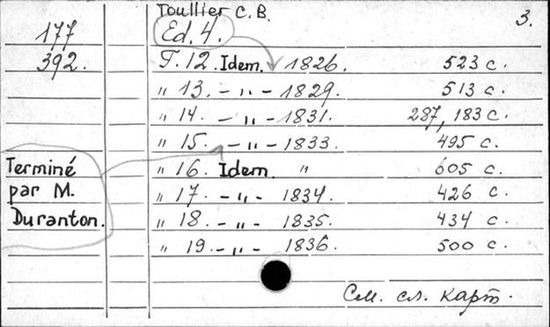 Toullier C. B.
3.
177
Ed. 4.
392.
T. 12. Idem. 1826. 523 с.
" 13. - " - 1829. 513 с.
" 14. - " - 1831. 287, 183 с.
" 15. - " - 1833. 495 с.
Terminé
" 16. Idem. " 605 с.
par M.
" 17. - " - 1834. 426 с.
Duranton.
" 18. - " - 1835. 434 с.
" 19. - " - 1836. 500 с.
См. сл. карт.